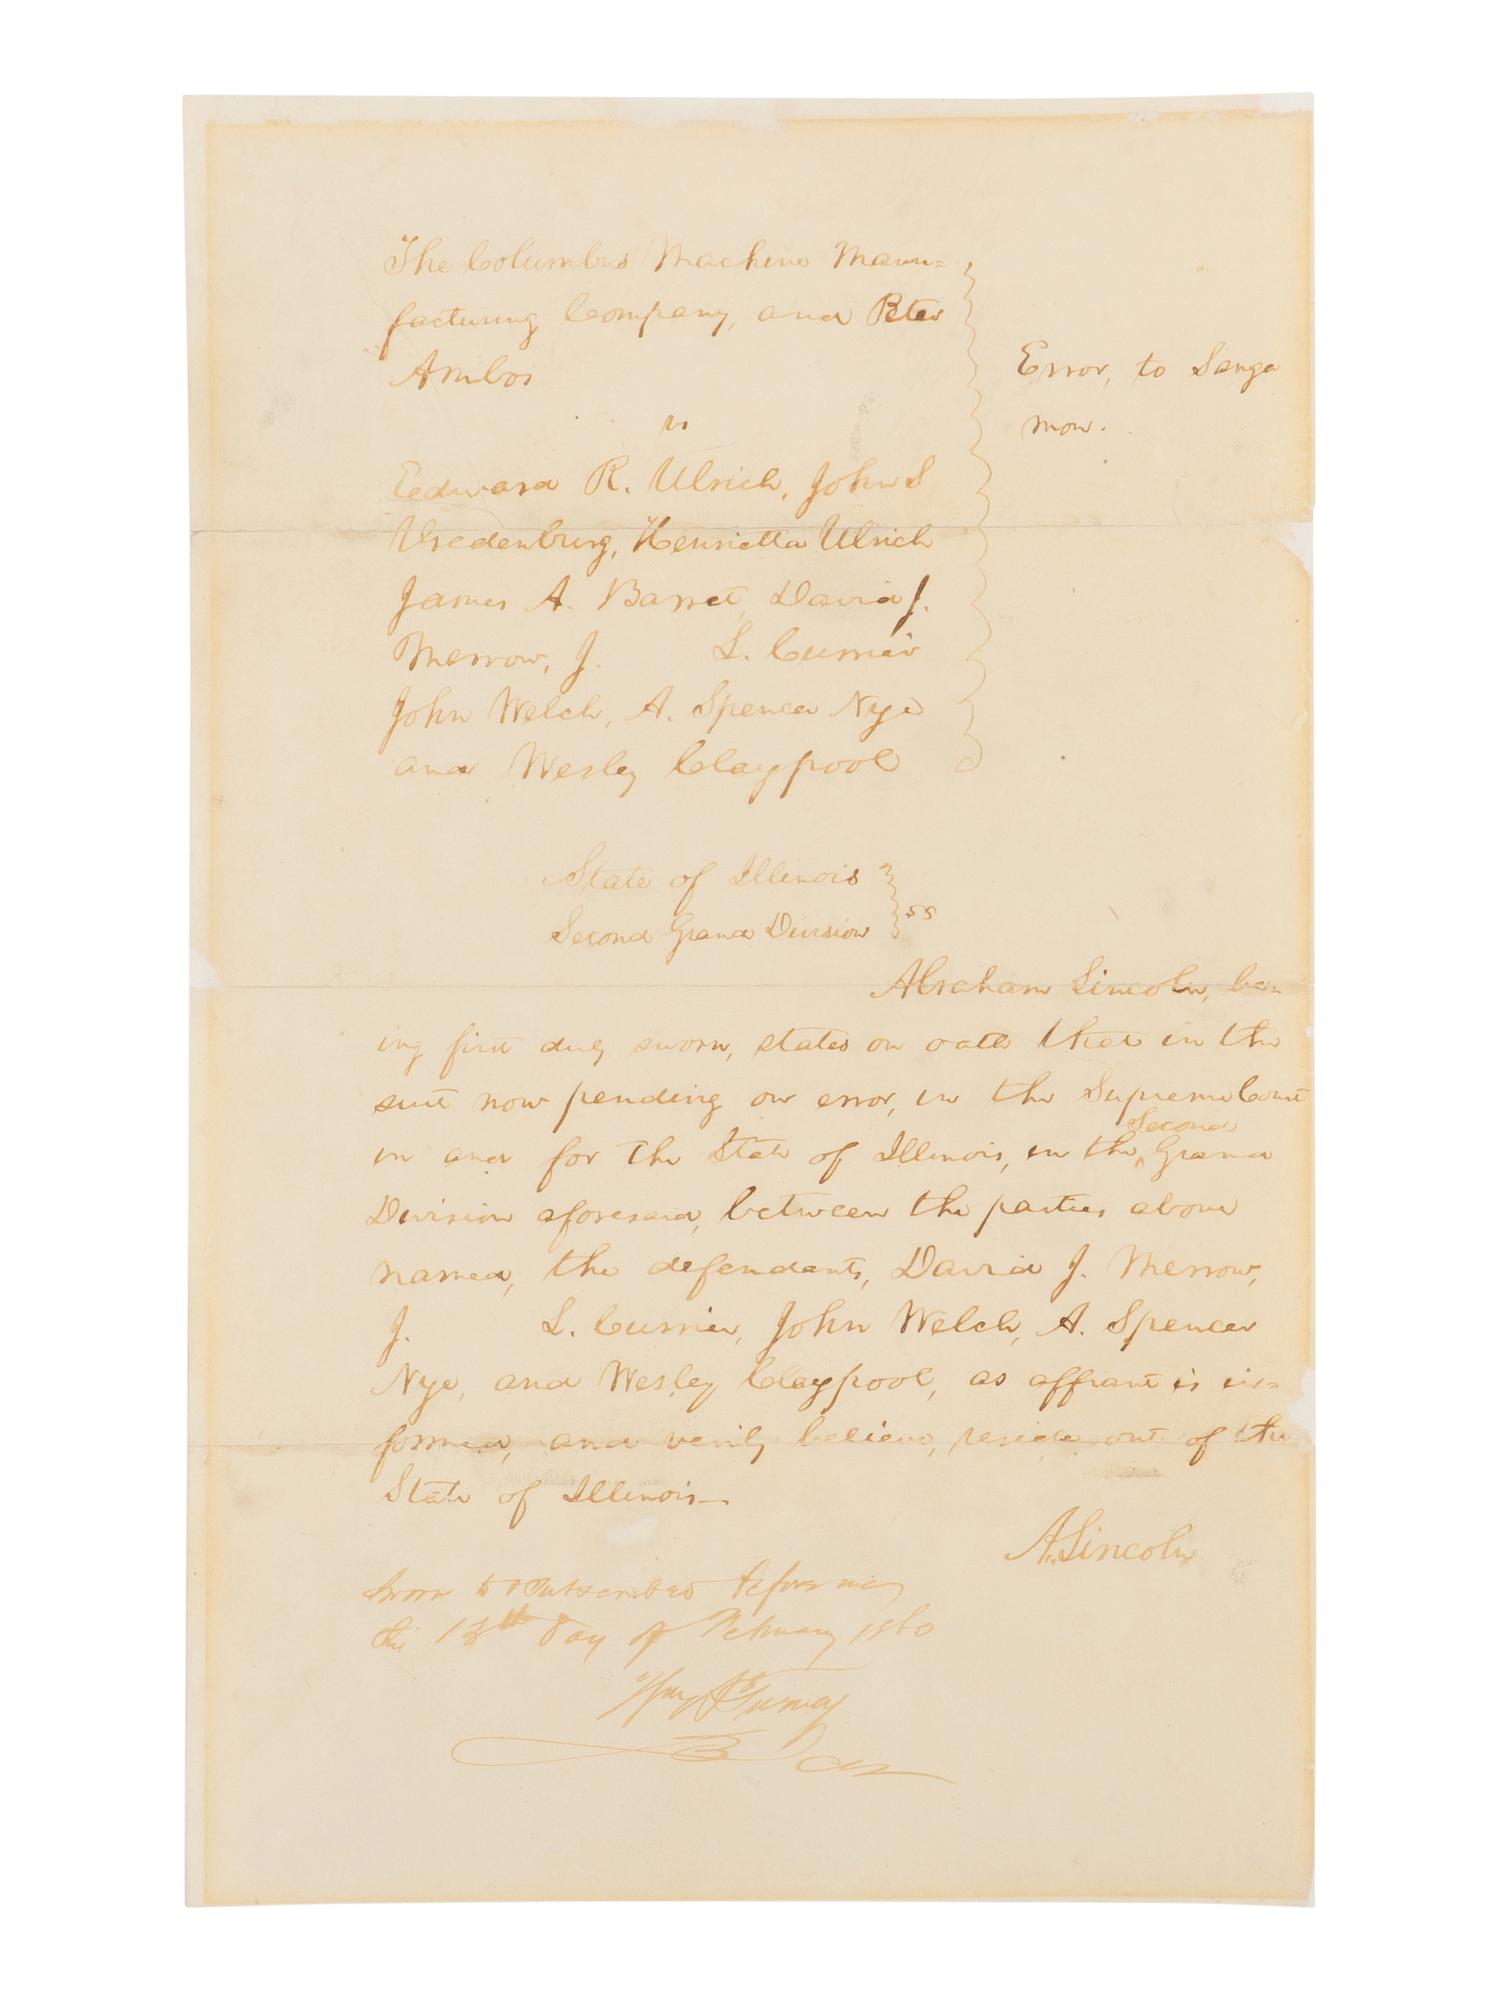 The Columbus Machine Manu=
facturing Company, and Peter
Ambos
vs
Edward R. Ulrich, John S
Vredenburg, Henrietta Ulrich
James A. Barret, David J.
Merrow, J. L. Currier
John Welch, A. Spencer Nye
and Wesley Claypool
Error, to Sanga
mon.
State of Illinois
Second Grand Division
ss
Abraham Lincoln, be-
ing first duly sworn, states on oath that in the
suit now pending on error, in the Supreme Court
in and for the State of Illinois, in the ^Second Grand
Division aforesaid, between the parties above
named, the defendants, David J. Merrow,
J. L. Currier, John Welch, A. Spencer
Nye, and Wesley Claypool, as affiant is in=
formed, and verily believes, reside out of the
State of Illinois—
A. Lincoln
Sworn to & Subscribed before me
this 13th day of February 1860
Wm A Turney